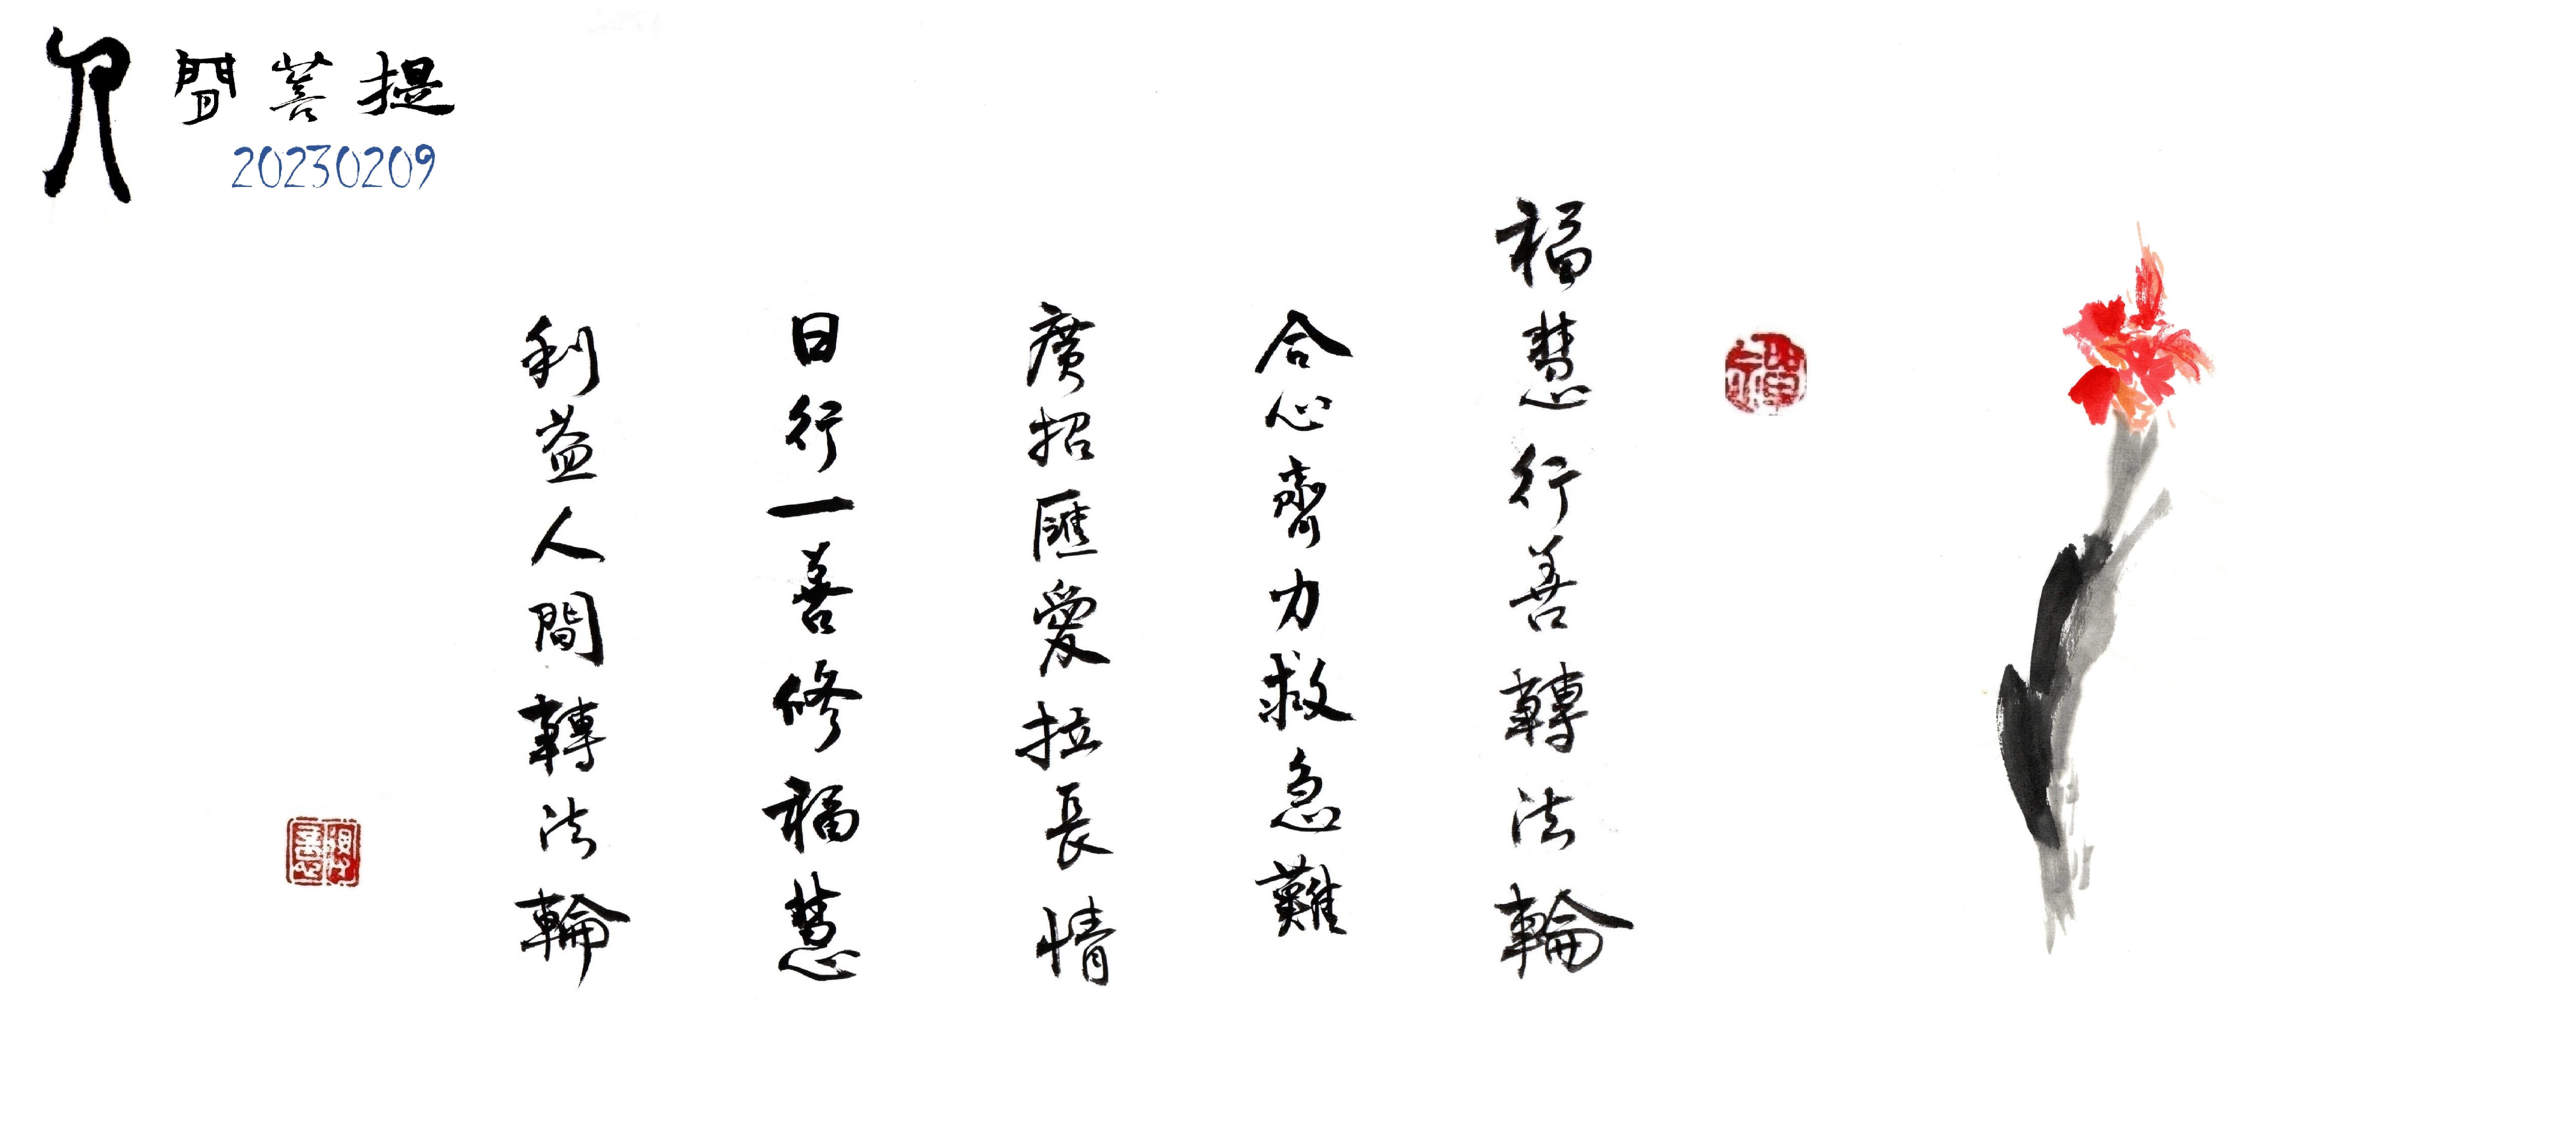 人間菩提
20230209
福慧行善轉法輪
合心齊力救急難
廣招匯愛拉長情
日行一善修福慧
利益人間轉法輪